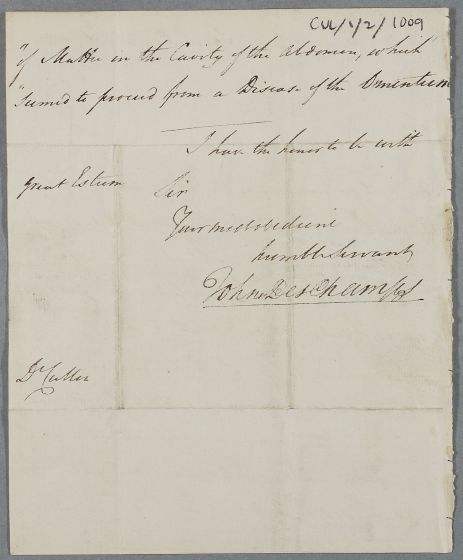 CUL/1/2/1009
"of Matter in the Cavity of the abdomen, which
"seemed to proceed from a Disease of the Omentum
I have the honor to be with
great Esteem Sir
Your most obedient
humble Servant
John DesChamps
Dr Cullen